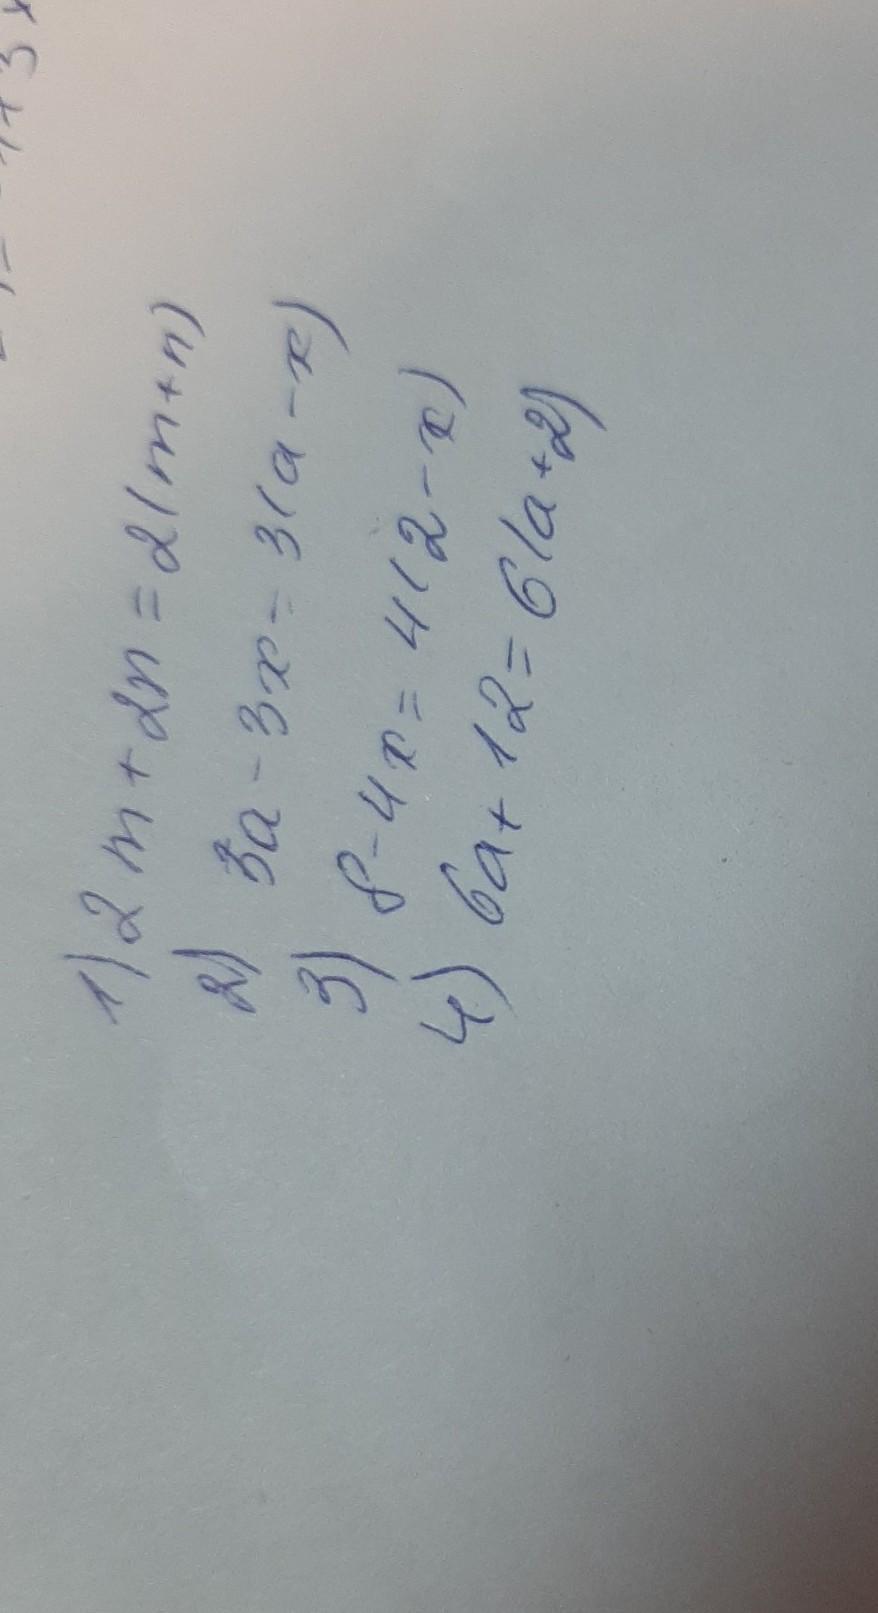 1) 2m + 2n = 2(m+n)
2) 3a - 3x = 3(a-x)
3) 8-4x = 4(2-x)
4) 6a+12=6(a+2)